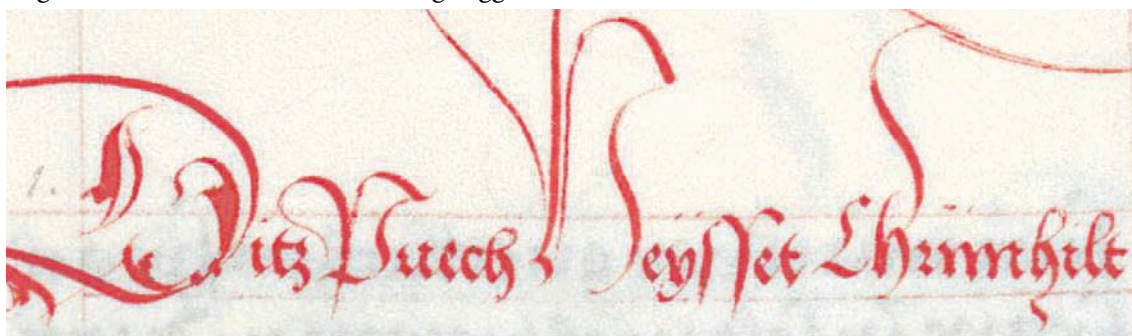 1. Ditz Puech Heysset Chrimhilt